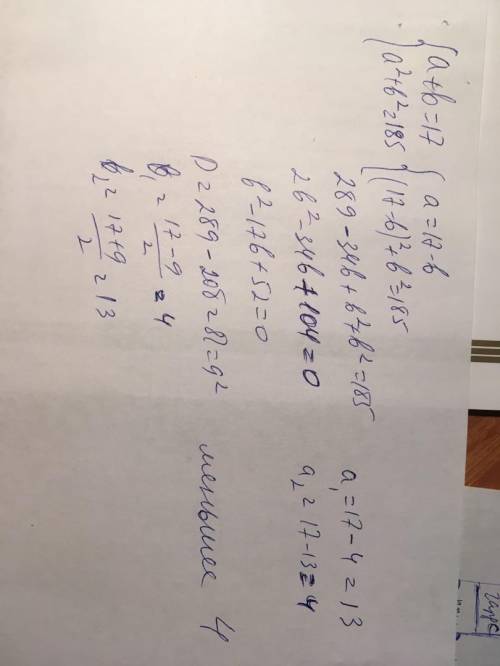 { a+b=17 { a=17-b
{ a²+b²=185 { (17-b)²+b²=185
289-34b+b²+b²=185
2b²-34b+104=0
b²-17b+52=0
D=289-208=81=9²
b₁= (17-9)/2 =4
b₂= (17+9)/2 =13
a₁=17-4=13
a₂=17-13=4
меньшее 4